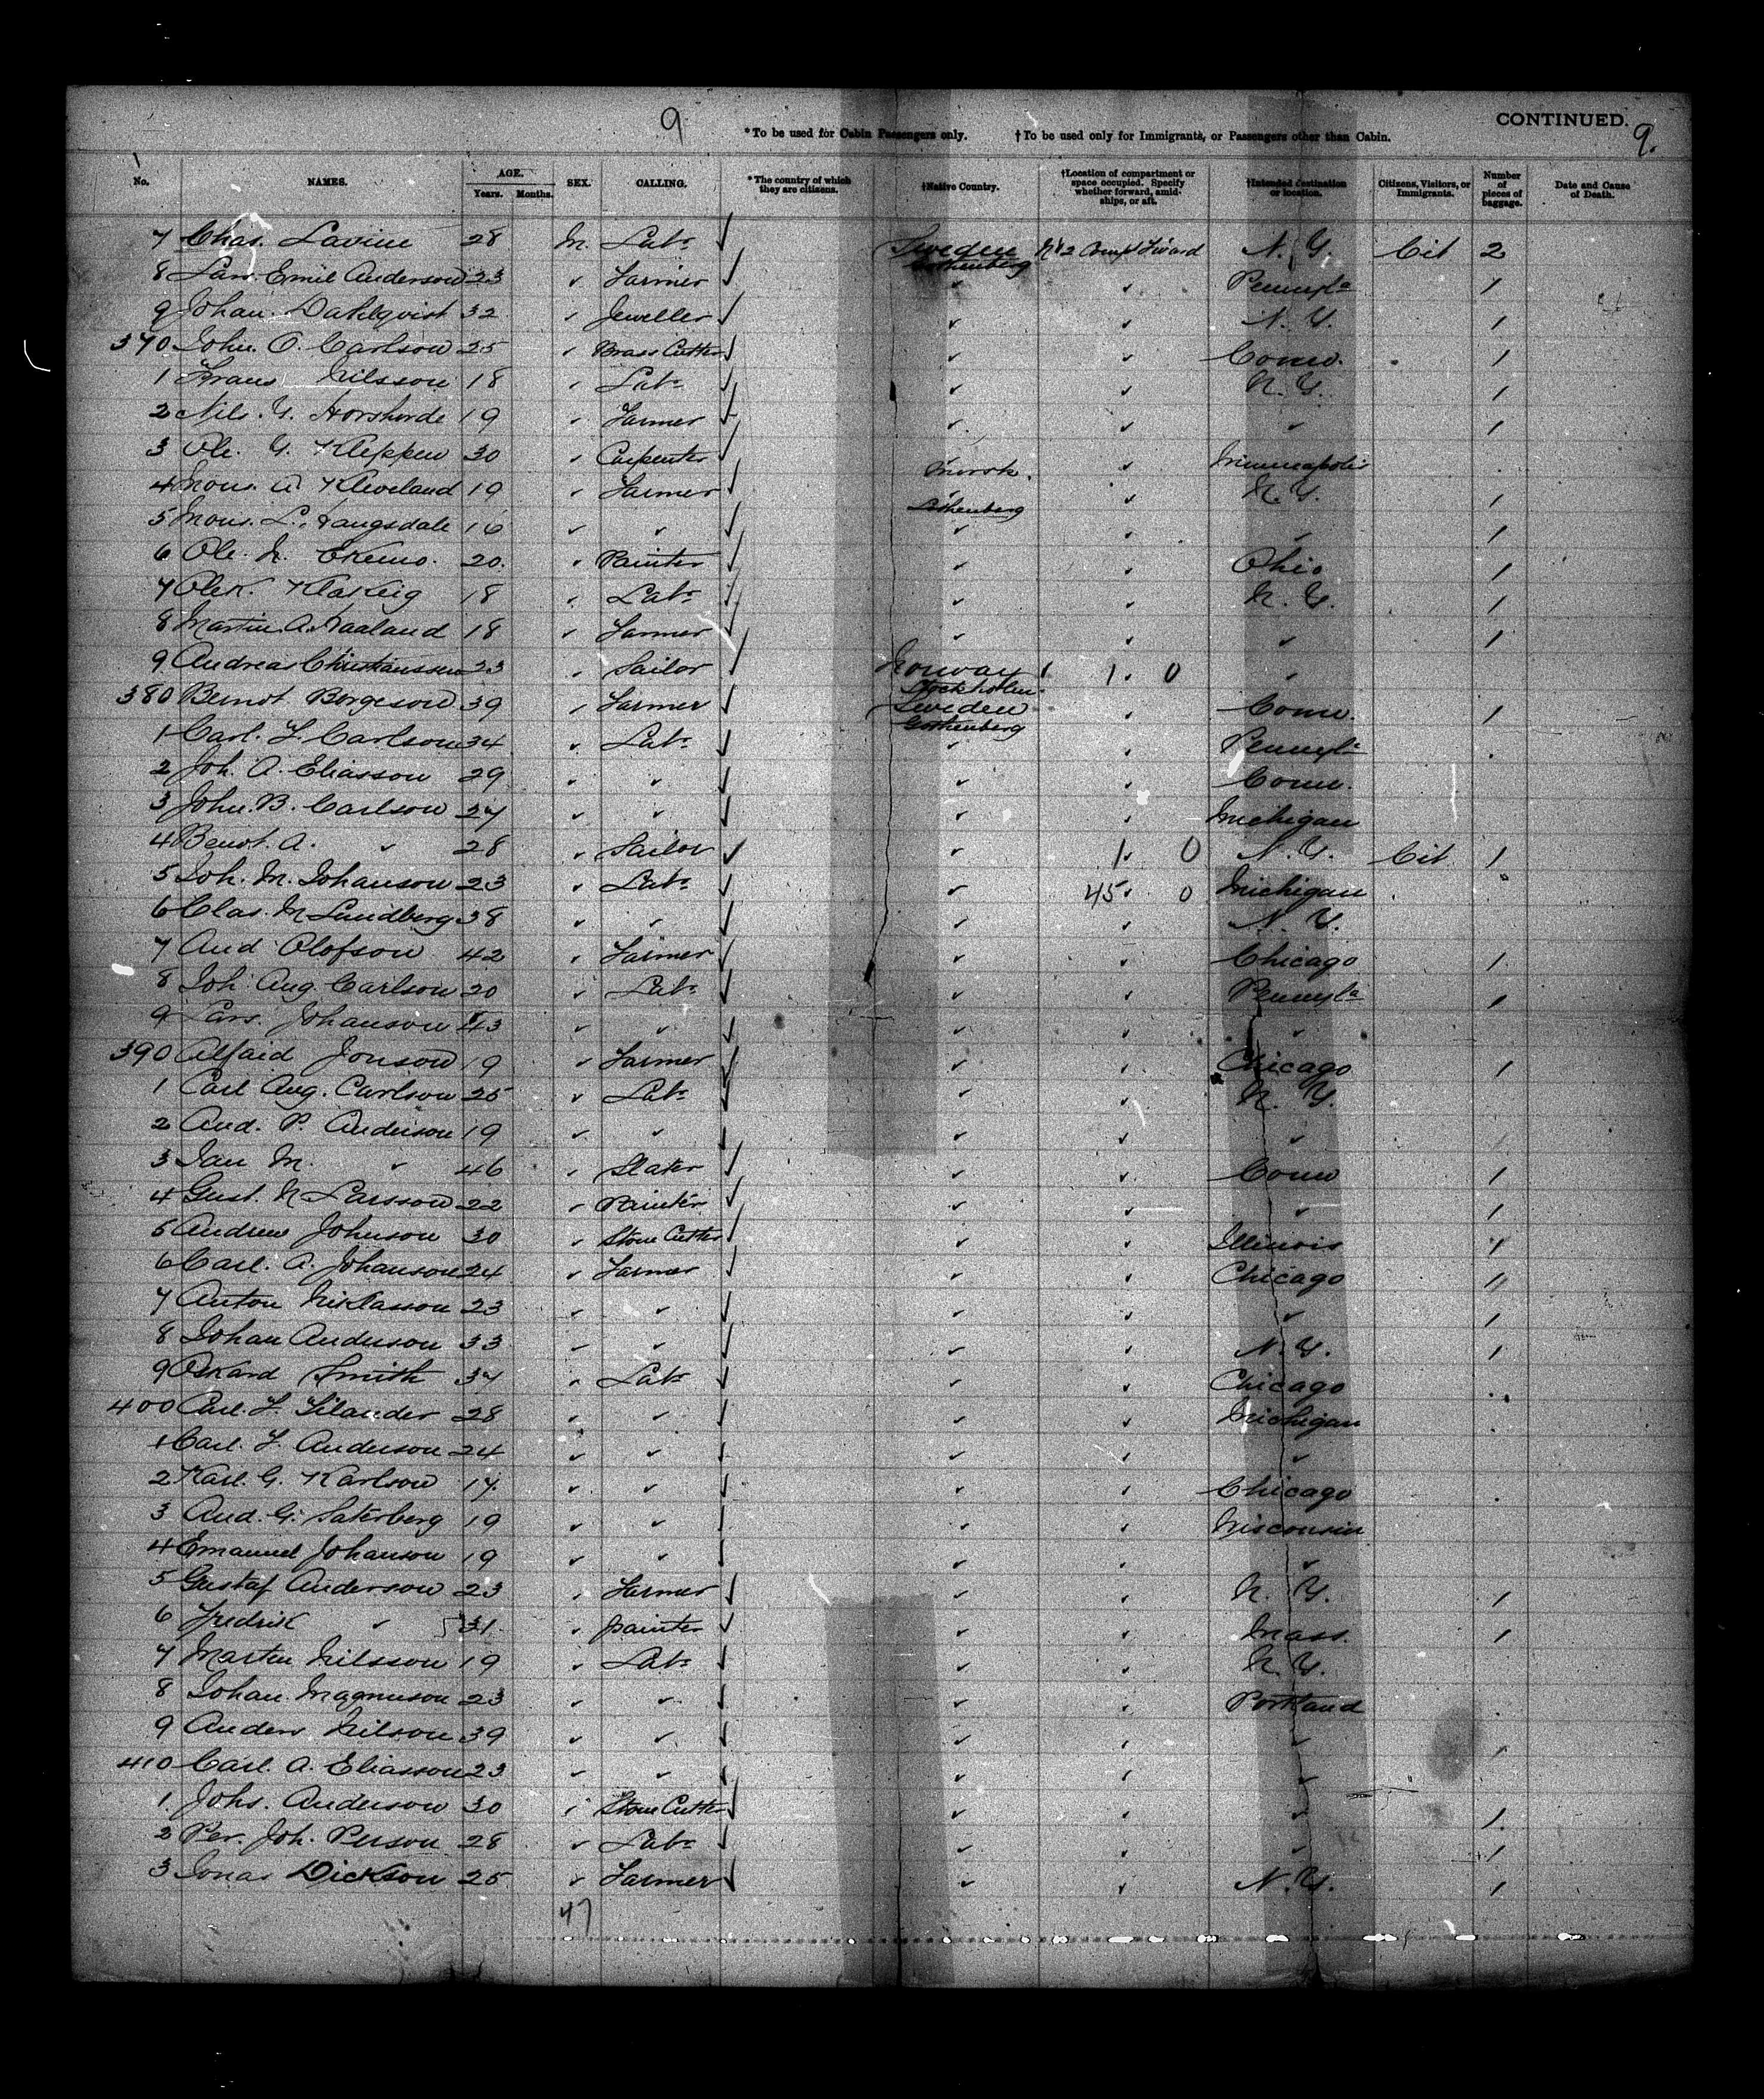 9
CONTINUED.
9.
*To be used for Cabin Passengers only. †To be used only for Immigrants, or Passengers other than Cabin.
No. NAMES. AGE. Years. Months. SEX. CALLING. *The country of which they are citizens. †Native Country. †Location of compartment or space occupied. Specify whether forward, amidships, or aft. †Intended destination or location. Citizens, Visitors, or Immigrants. Number of pieces of baggage. Date and Cause of Death.
7 Chas. Lavine 28 M. Labr ✓ Sweden Gothenberg No 2 Comp Forward N. Y. Cit 2
8 Lars. Emil Anderson 23 ✓ Farmer ✓ ✓ ✓ Pennyla 1
9 Johan. Dahlqvist 32 ✓ Jeweller ✓ ✓ ✓ N. Y. 1
370 John. O. Carlson 25 ✓ Brass Cutter ✓ ✓ ✓ Conn. 1
1 Frans Nilsson 18 ✓ Labr ✓ ✓ ✓ N. Y. 1
2 Nils. G. 19 ✓ Farmer ✓ ✓ ✓ ✓ 1
3 Ole. G. Kleppen 30 ✓ Carpenter ✓ ✓ Minneapolis
4 Mons. A. Kleveland 19 ✓ Farmer ✓ Gothenberg ✓ N. Y. 1
5 Mons. L. Haugsdale 16 ✓ ✓ ✓ ✓ ✓ ✓ 1
6 Ole. N. Ekemo. 20. ✓ Painter ✓ ✓ ✓ Ohio 1
7 Ole K. 18 ✓ Labr ✓ ✓ ✓ N. Y. 1
8 Martin A. Haaland 18 ✓ Farmer ✓ ✓ ✓ ✓ 1
9 Andreas Christianssen 23 ✓ Sailor ✓ Norway Stockholm 1. 0 ✓
380 Bernot Borgeson 39 ✓ Farmer ✓ Sweden Gothenberg ✓ Conn. 1
1 Carl. F. Carlson 34 ✓ Labr ✓ ✓ ✓ Pennyla
2 Joh. A. Eliasson 29 ✓ ✓ ✓ ✓ ✓ Conn.
3 John. B. Carlson 27 ✓ ✓ ✓ ✓ ✓ Michigan
4 Bernt. A. ✓ 28 ✓ Sailor ✓ ✓ 1 0 N. Y. Cit 1
5 Joh. M. Johanson 23 ✓ Labr ✓ ✓ 45 0 Michigan
6 Clas. M Lundberg 38 ✓ ✓ ✓ ✓ ✓ N. Y.
7 And Olofson 42 ✓ Farmer ✓ ✓ ✓ Chicago 1
8 Joh. Aug. Carlson 20 ✓ Labr ✓ ✓ ✓ Pennyla 1
9 Lars. Johanson 43 ✓ ✓ ✓ ✓ ✓ ✓
390 Alfaid Jonson 19 ✓ Farmer ✓ ✓ ✓ Chicago 1
1 Carl Aug. Carlson 25 ✓ Labr ✓ ✓ ✓ N. Y.
2 And. P. Anderson 19 ✓ ✓ ✓ ✓ ✓ ✓
3 Jan M. ✓ 46 ✓ Slater ✓ ✓ ✓ Conn 1
4 Gust. N Larsson 22 ✓ Painter ✓ ✓ ✓ ✓ 1
5 Andrew Johnson 30 ✓ Stone Cutter ✓ ✓ ✓ Illinois 1
6 Carl. A. Johanson 24 ✓ Farmer ✓ ✓ ✓ Chicago 1
7 Anton Niklasson 23 ✓ ✓ ✓ ✓ ✓ ✓ 1
8 Johan Anderson 33 ✓ ✓ ✓ ✓ ✓ N. Y. 1
9 Oskard Smith 34 ✓ Labr ✓ ✓ ✓ Chicago
400 Carl. F. Silander 28 ✓ ✓ ✓ ✓ ✓ Michigan
1 Carl. F. Anderson 24 ✓ ✓ ✓ ✓ ✓ ✓
2 Karl. G. Karlson 17. ✓ ✓ ✓ ✓ ✓ Chicago
3 And. G. Saterberg 19 ✓ ✓ ✓ ✓ ✓ Wisconsin
4 Emanuel Johanson 19 ✓ ✓ ✓ ✓ ✓ ✓
5 Gustaf Anderson 23 ✓ Farmer ✓ ✓ ✓ N. Y. 1
6 Fredrik ✓ 31 ✓ Painter ✓ ✓ ✓ Mass. 1
7 Marten Nilsson 19 ✓ Labr ✓ ✓ ✓ N. Y.
8 Johan. Magnuson 23 ✓ ✓ ✓ ✓ ✓ Portland
9 Anders Nilson 39 ✓ ✓ ✓ ✓ ✓ ✓ 1
410 Carl. A. Eliasson 23 ✓ ✓ ✓ ✓ ✓ ✓
1. Johs. Anderson 30 ✓ Stone Cutter ✓ ✓ ✓ ✓ 1.
2 Per. Joh. Person 28 ✓ Labr ✓ ✓ ✓ ✓ 1
3 Jonas Dickson 25 ✓ Farmer ✓ ✓ ✓ N. Y. 1
47